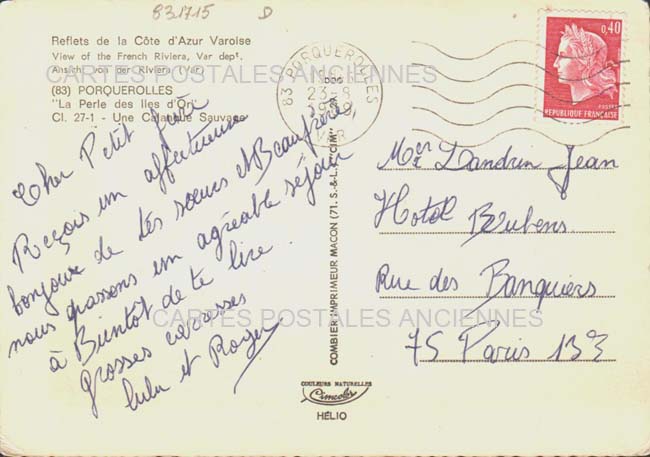 831715 D
Reflets de la Côte d'Azur Varoise
View of the French Riviera, Var depᵗ.
Ansicht von der Riviera (Var)
(83) PORQUEROLLES
"La Perle des Iles d'Or"
Cl. 27-1 - Une Calanque Sauvage
CARTES POSTALES ANCIENNES
Cher Petit frère
Reçois un affectueux
bonjour de tes soeurs et Beaufrère,
nous passons un agréable séjour
à Bientot de te lire.
grosses caresses
lulu et Roger
COMBIER IMPRIMEUR MACON (71. S.-&-L.) "CIM"
COULEURS NATURELLES
Cimcolor
HÉLIO
83 PORQUEROLLES
23-8
VAR
0,40
POSTES
REPUBLIQUE FRANÇAISE
Mer Dandrin Jean
Hotel Rubens
Rue des Banquiers
75 Paris 13E
CARTES POSTALES ANCIENNES